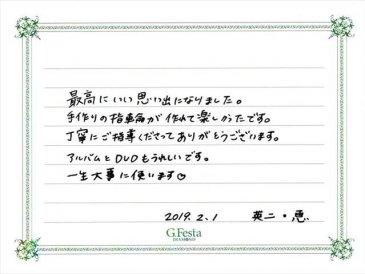 最高にいい思い出になりました。
手作りの指輪が作れて楽しかったです。
丁寧にご指導くださってありがとうございます。
アルバムとDVDもうれしいです。
一生大事に使います♡
2019.2.1 英二・恵
G.Festa
DIAMOND